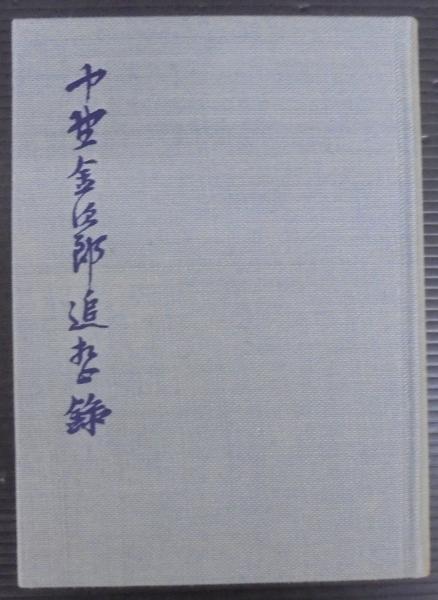 中埜金次郎追想録